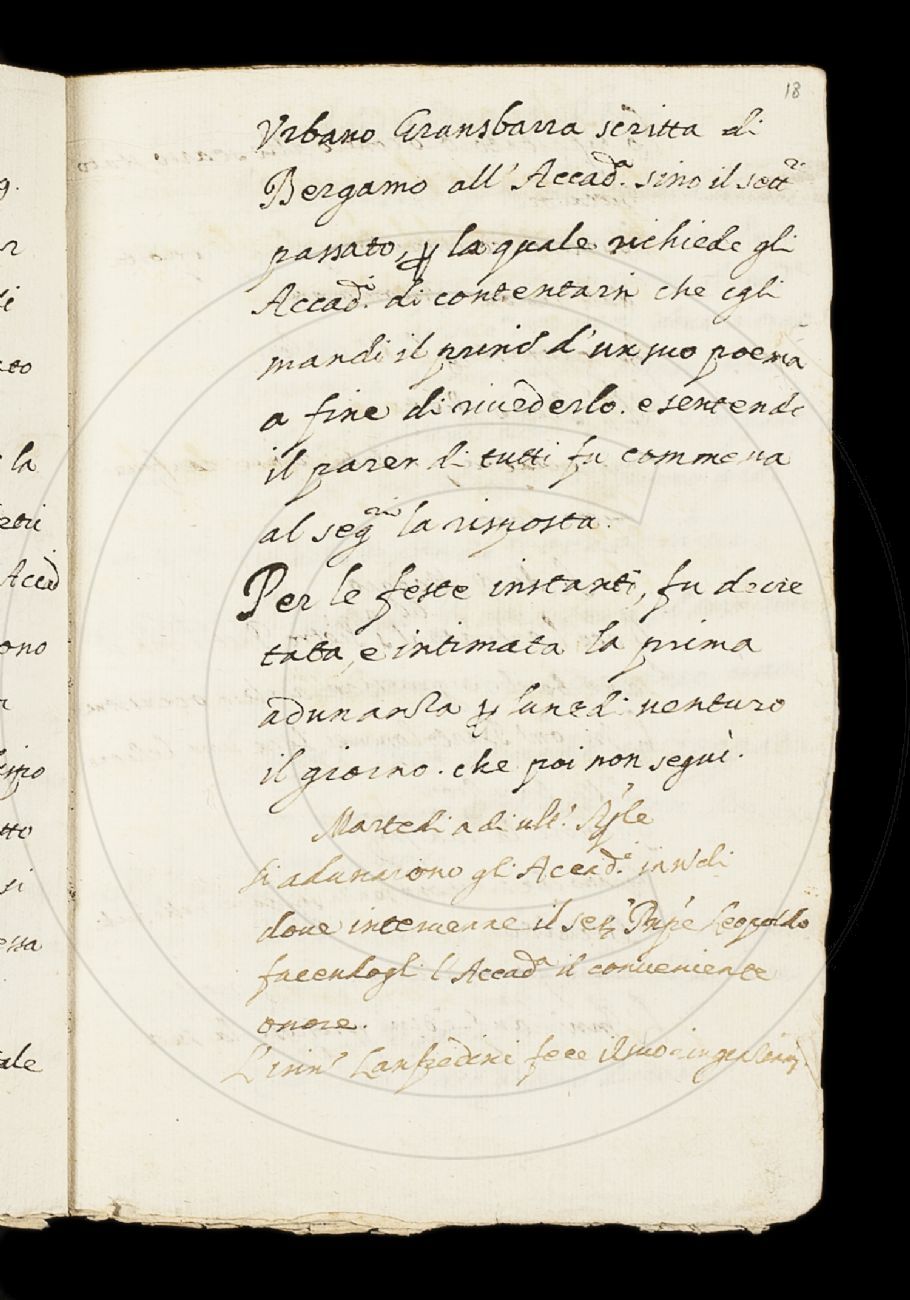 18
Urbano Gransbarra scritta di
Bergamo all' Accad.ª sino il sett.re
passato, p la quale richiede gli
Accad.i di contentarsi che egli
mandi il princ.º d'un suo poema
a fine di rivederlo. e sentendo
il parer di tutti fu commena
al seg.rio la risposta.
Per le feste instanti, fu decre
tata, e intimata la prima
adunanza p lunedi venturo
il giorno. che poi non seguì.
Martedi adi ult.º Aple
Si adunarono gl'Accad.i
dove intervenne il Ser.º Prnpe Leopoldo
facendogli l'Accad.ª il conveniente
onore.
Lanfredini fece il suo
g.
la
Accad
ono
tto
si
essa
ale